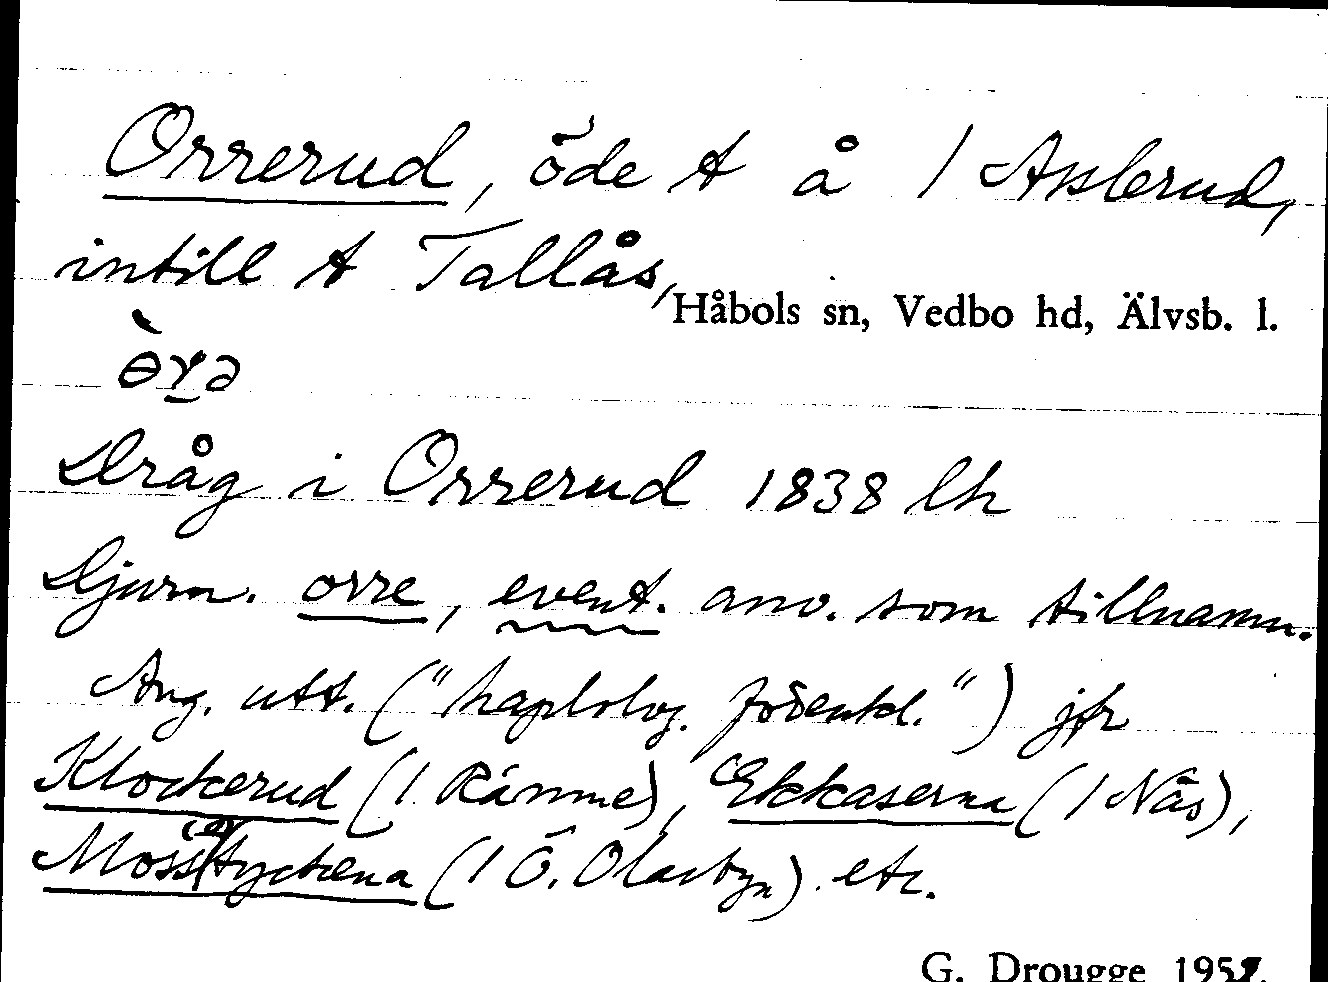 Orrerud, öde t å 1 Asslerud,
intill t Tallås,
Håbols sn, Vedbo hd, Älvsb. l.
òrə
Dråg i Orrerud 1838 lh
Djurn. orre, event. anv. som tillnamn.
Ang. utt. ("haplolog. förenkl.") jfr
Klockerud (1 Rämne), Ekkaserna (1 Nås),
Moss(e)tyckena (1 Ö. Olasbyn) etc.
G. Drougge 195